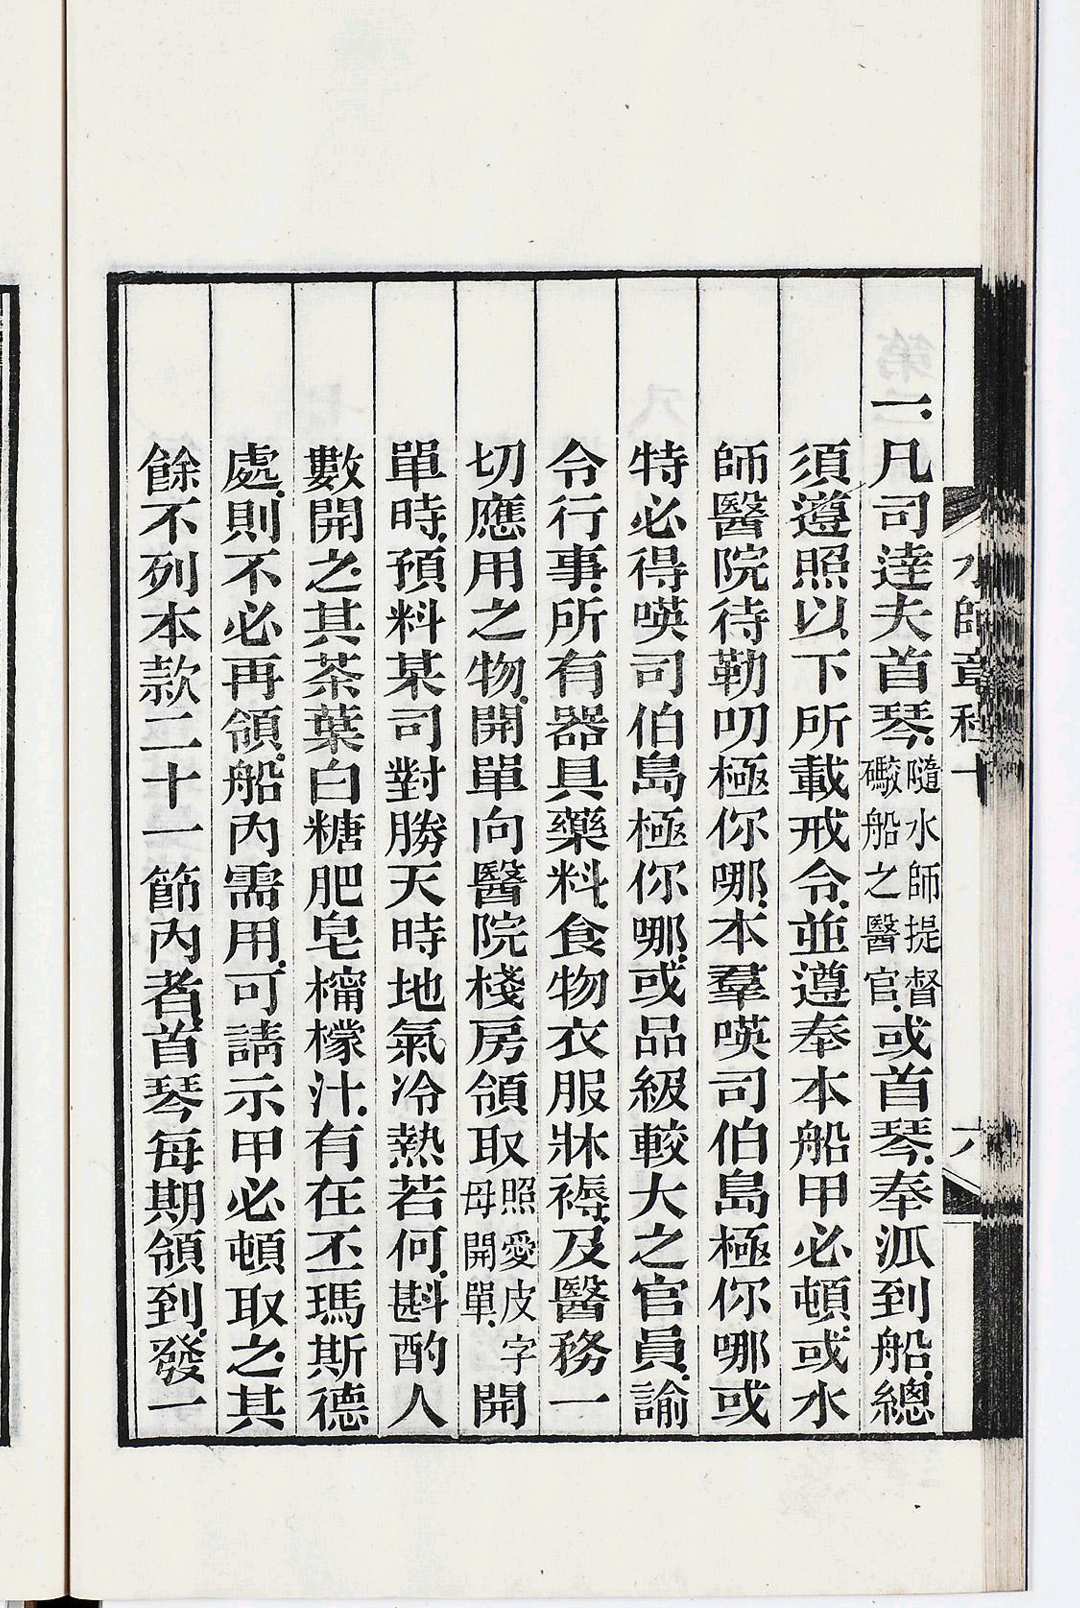 水師章程十 六
一凡司達夫首琴隨水師提督礮船之醫官或首琴奉派到船總
須遵照以下所載戒令並遵奉本船甲必頓或水
師醫院待勒叨極你哪本羣嘆司伯島極你哪或
特必得嘆司伯島極你哪或品級較大之官員諭
令行事所有器具藥料食物衣服牀褥及醫務一
切應用之物開單向醫院棧房領取照愛皮字母開單開
單時預料某司對勝天時地氣冷熱若何斟酌人
數開之其茶葉白糖肥皂檸檬汁有在丕瑪斯德
處則不必再領船內需用可請示甲必頓取之其
餘不列本款二十一節內者首琴每期領到發一